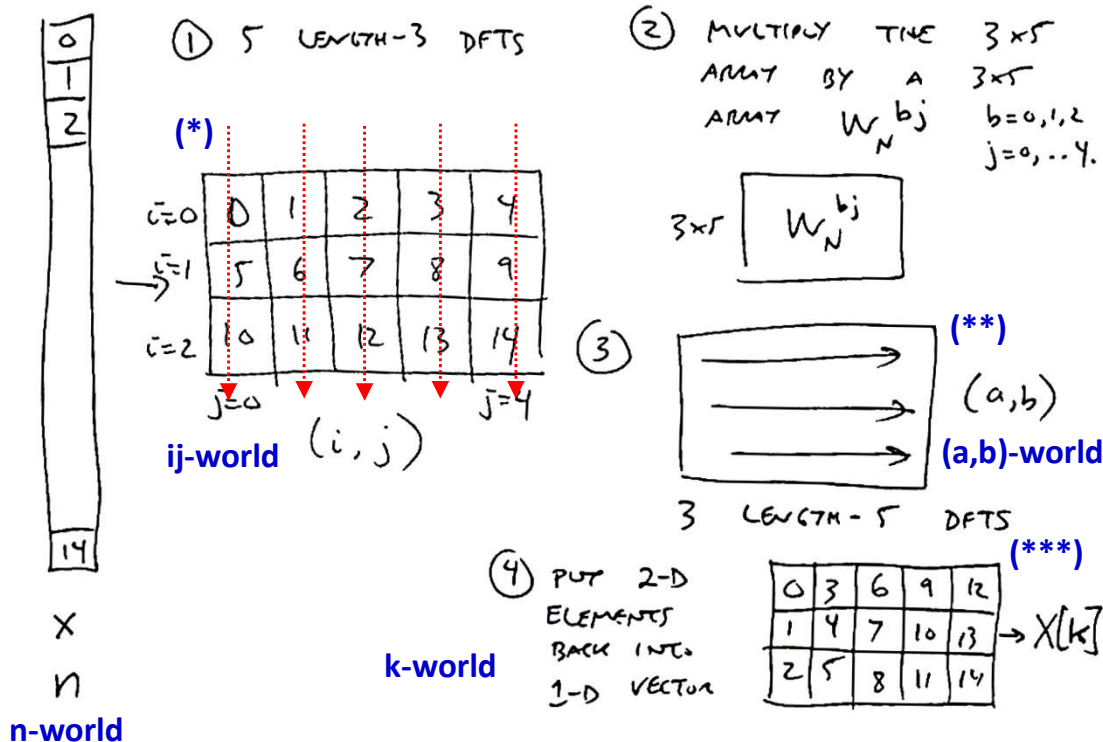 0
1
2
14
x
n
n-world
① 5 LENGTH-3 DFTS
(*)
i=0 0 1 2 3 4
i=1 5 6 7 8 9
i=2 10 11 12 13 14
j=0 j=4
ij-world (i, j)
② MULTIPLY THE 3x5
ARRAY BY A 3x5
ARRAY W_N^{bj} b=0,1,2
j=0, ..4.
3x5 W_N^{bj}
③ (**)
(a,b)
(a,b)-world
3 LENGTH-5 DFTS
(***)
④ PUT 2-D
ELEMENTS
BACK INTO
1-D VECTOR
k-world
0 3 6 9 12
1 4 7 10 13 → X[k]
2 5 8 11 14